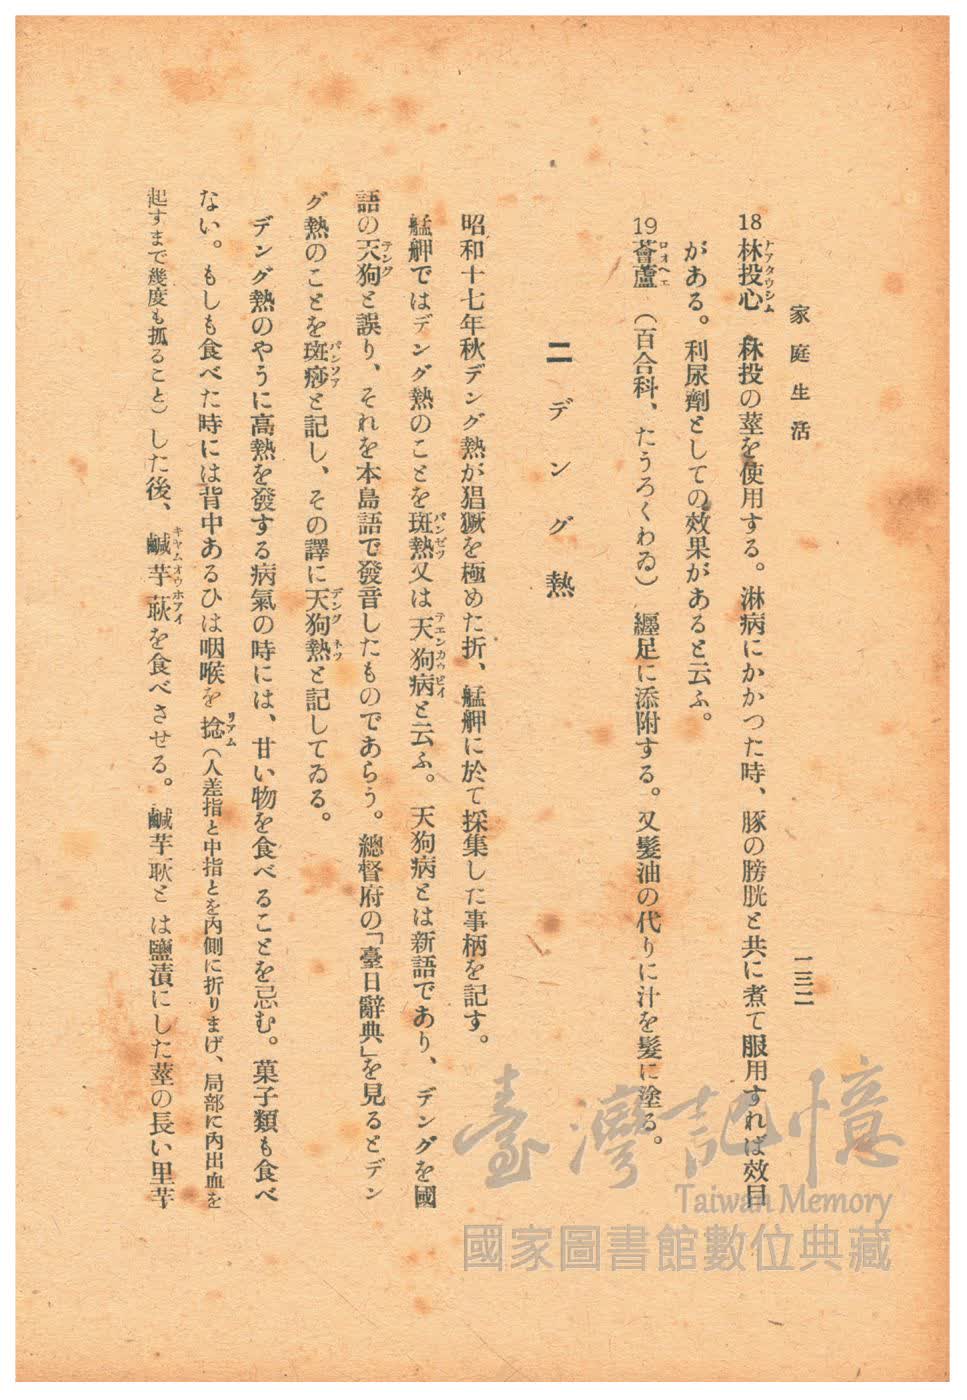 家庭生活
一三二
18 林投心 林投の莖を使用する。淋病にかかつた時、豚の膀胱と共に煮て服用すれば效目
ナアタウシム
がある。利尿劑としての效果があると云ふ。
19 薈蘆 （百合科、たうろくわゐ） 纏足に添附する。又髮油の代りに汁を髮に塗る。
ロオヘエ
二 デング熱
昭和十七年秋デング熱が猖獗を極めた折、艋舺に於て採集した事柄を記す。
艋舺ではデング熱のことを斑熱又は天狗病と云ふ。天狗病とは新語であり、デングを國
パンゼツ テエンカウピイ
語の天狗と誤り、それを本島語で發音したものであらう。總督府の「臺日辭典」を見るとデン
テング
グ熱のことを斑痧と記し、その譯に天狗熱と記してゐる。
パンソア デング ネツ
デング熱のやうに高熱を發する病氣の時には、甘い物を食べることを忌む。菓子類も食べ
ない。もしも食べた時には背中あるひは咽喉を捻（人差指と中指とを內側に折りまげ、局部に內出血を
リアム
起すまで幾度も抓ること）した後、鹹芋莯を食べさせる。鹹芋耿とは鹽漬にした莖の長い里芋
キヤムオウホアイ
臺灣記憶
Taiwan Memory
國家圖書館數位典藏